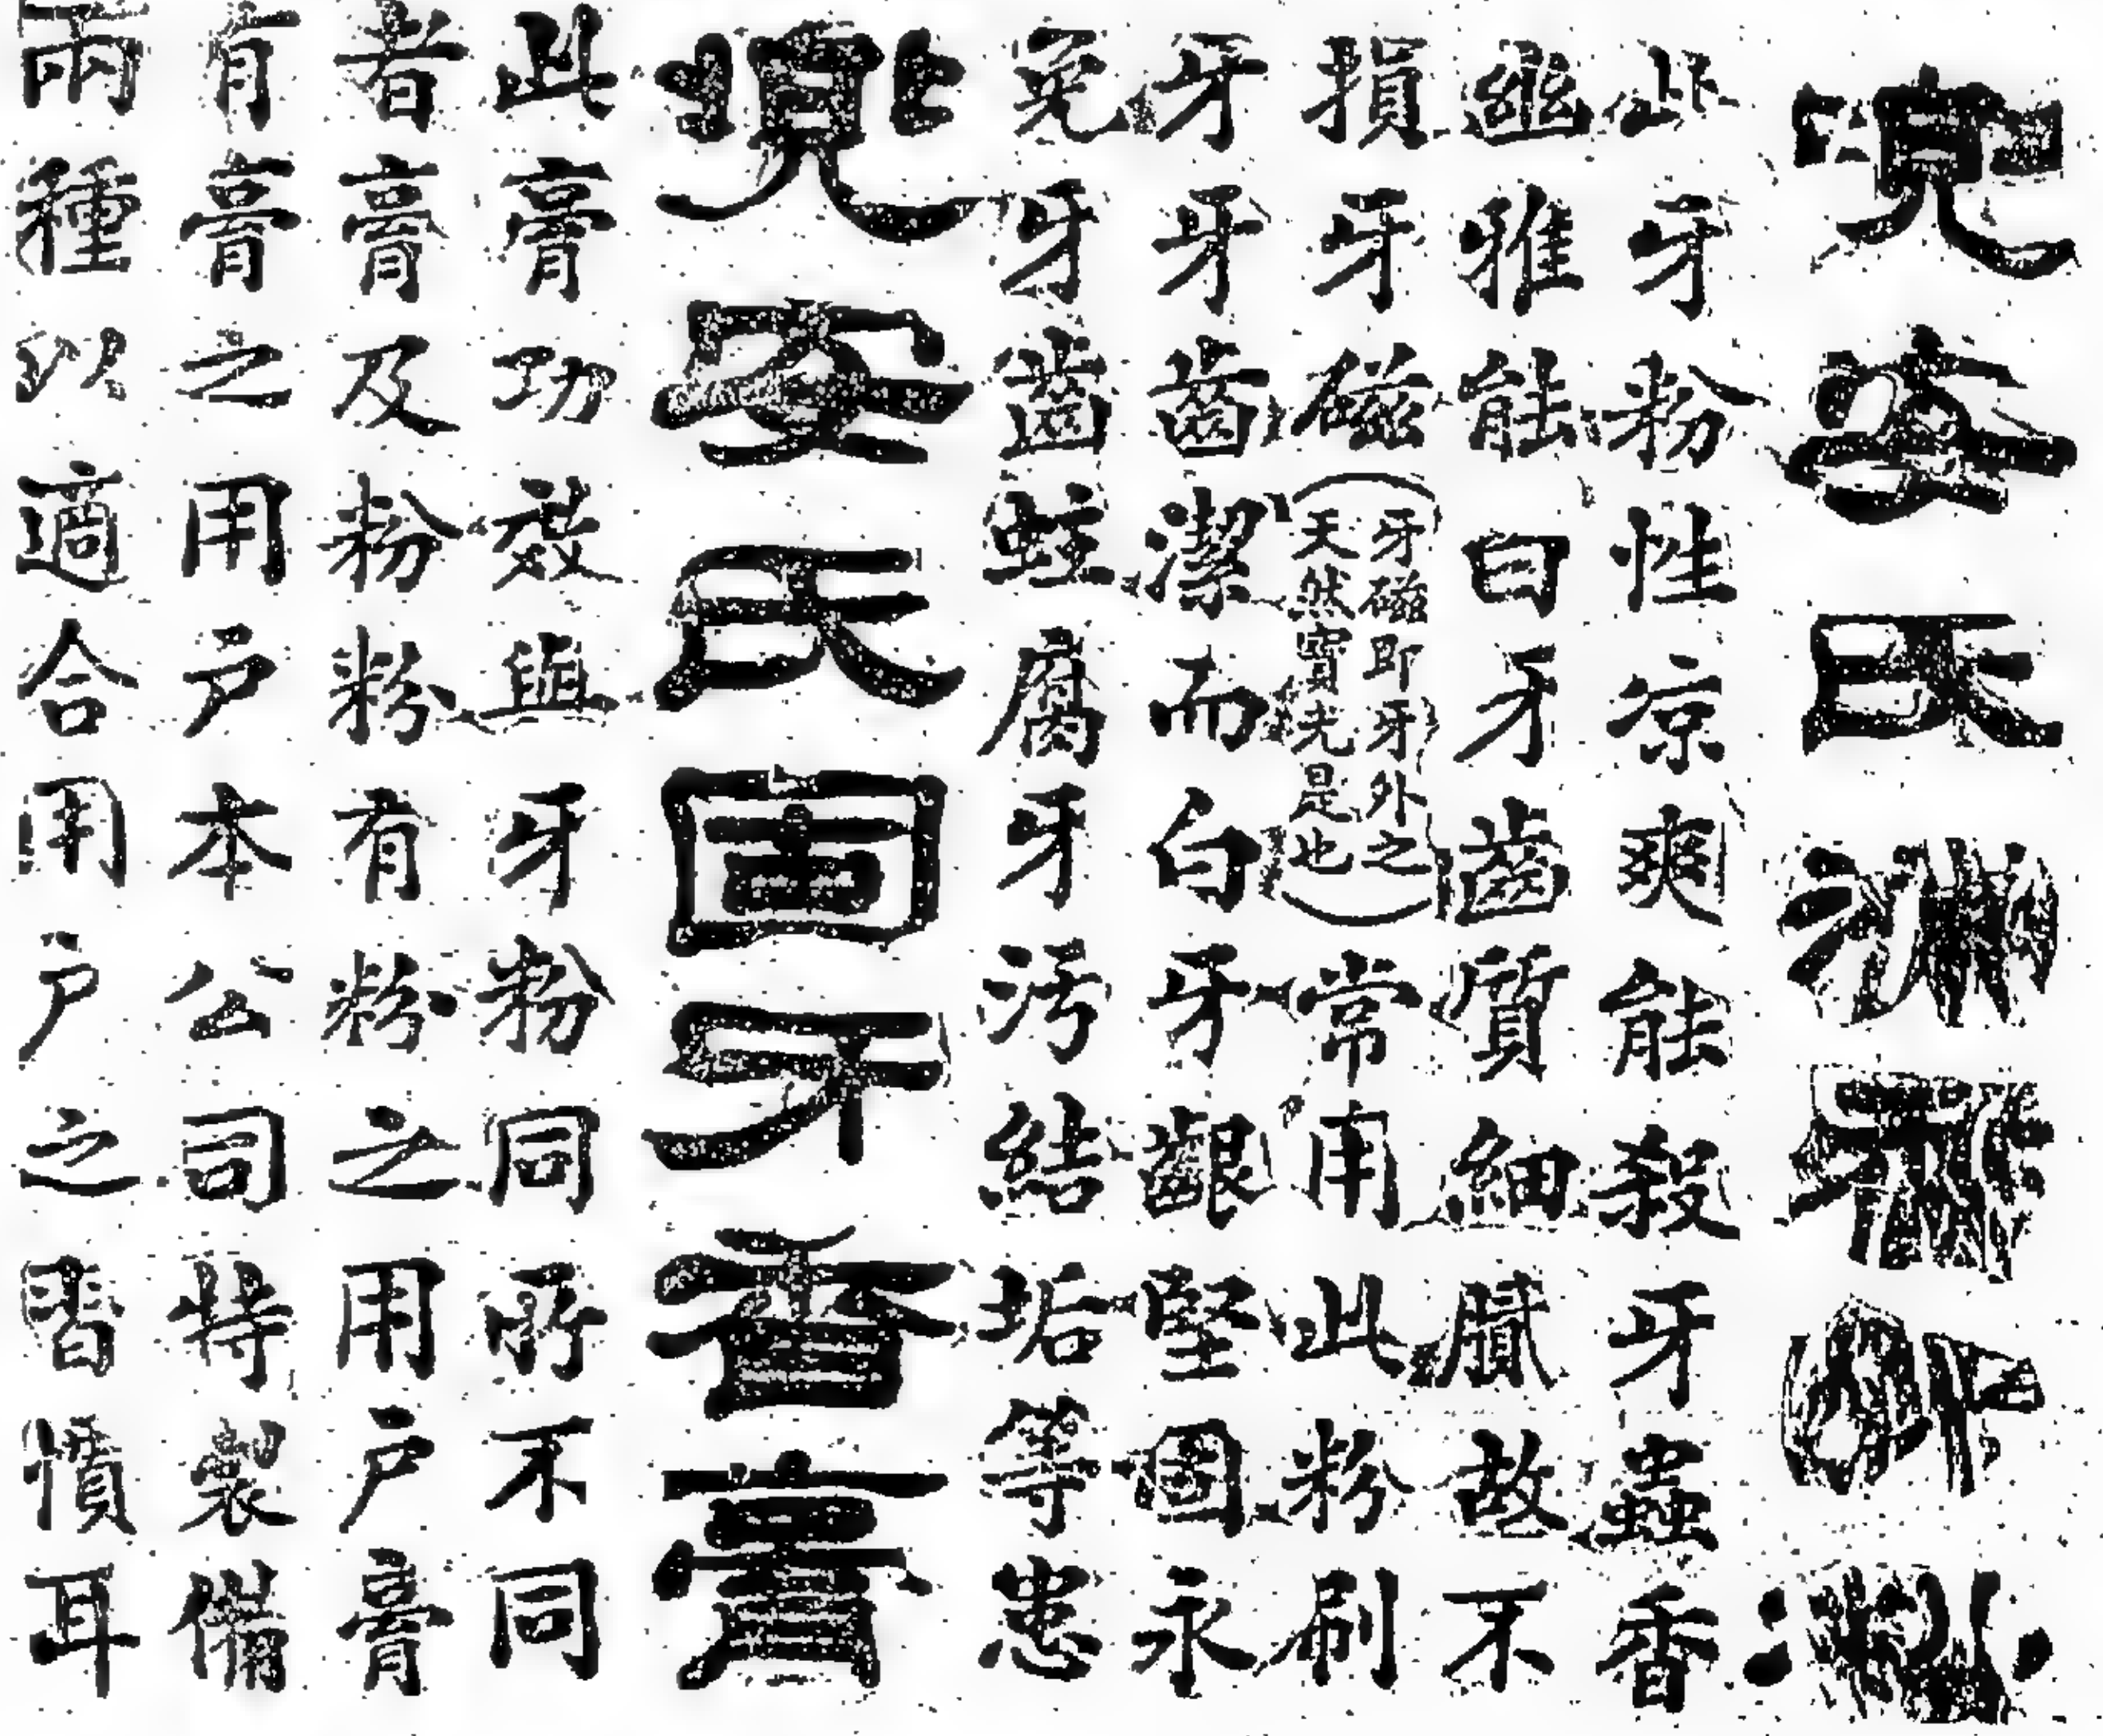 兜安氏
此牙粉性凉爽能殺牙蟲香
幽雅能白牙齒質細膩故不
損牙磁(牙磁即牙牙外之天然寶光是也)常用此粉刷
牙牙齒潔而白牙齦堅固永
免牙齒蛀腐牙污結垢等患
兜安氏固牙香膏
此膏功效與牙粉同所不同
者膏及粉粉有粉之用戶膏
有膏之用戶本公司特製備
兩種以適合用戶之習慣耳